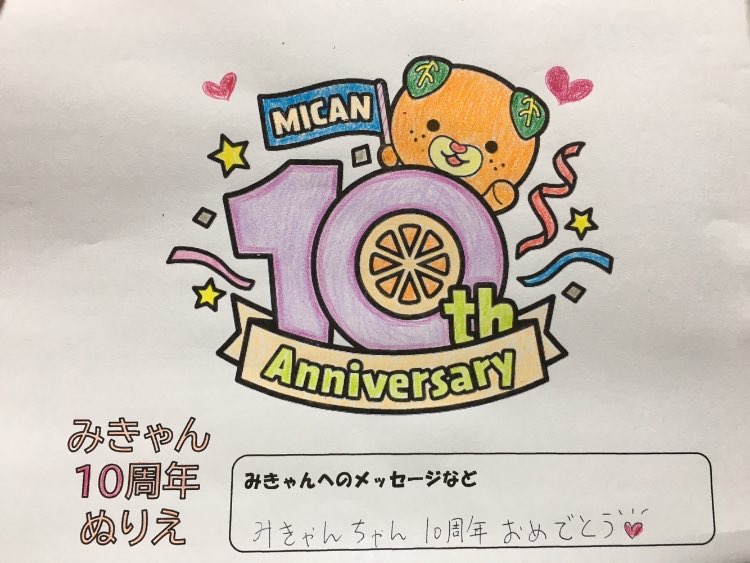 MICAN
10th
Anniversary
みきゃん
10周年
ぬりえ
みきゃんへのメッセージなど
みきゃんちゃん 10周年 おめでとう♥